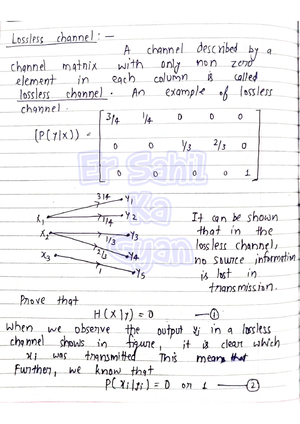 Lossless channel:-
A channel described by a
channel matrix with only non zero
element in each column is called
lossless channel. An example of lossless
channel.
[P(y|x)] = [3/4 1/4 0 0 0
0 0 1/3 2/3 0
0 0 0 0 1]
Er Sahil
Ka
Gyan
3/4 y1
x1 1/4 y2
x2 1/3 y3
2/3 y4
x3 1 y5
It can be shown
that in the
lossless channel,
no source information
is lost in
transmission.
Prove that
H(X|Y) = 0 —①
When we observe the output yj in a lossless
channel shows in figure, it is clear which
xi was transmitted This means that
Further, we know that
P(xi|yj) = 0 or 1 —②